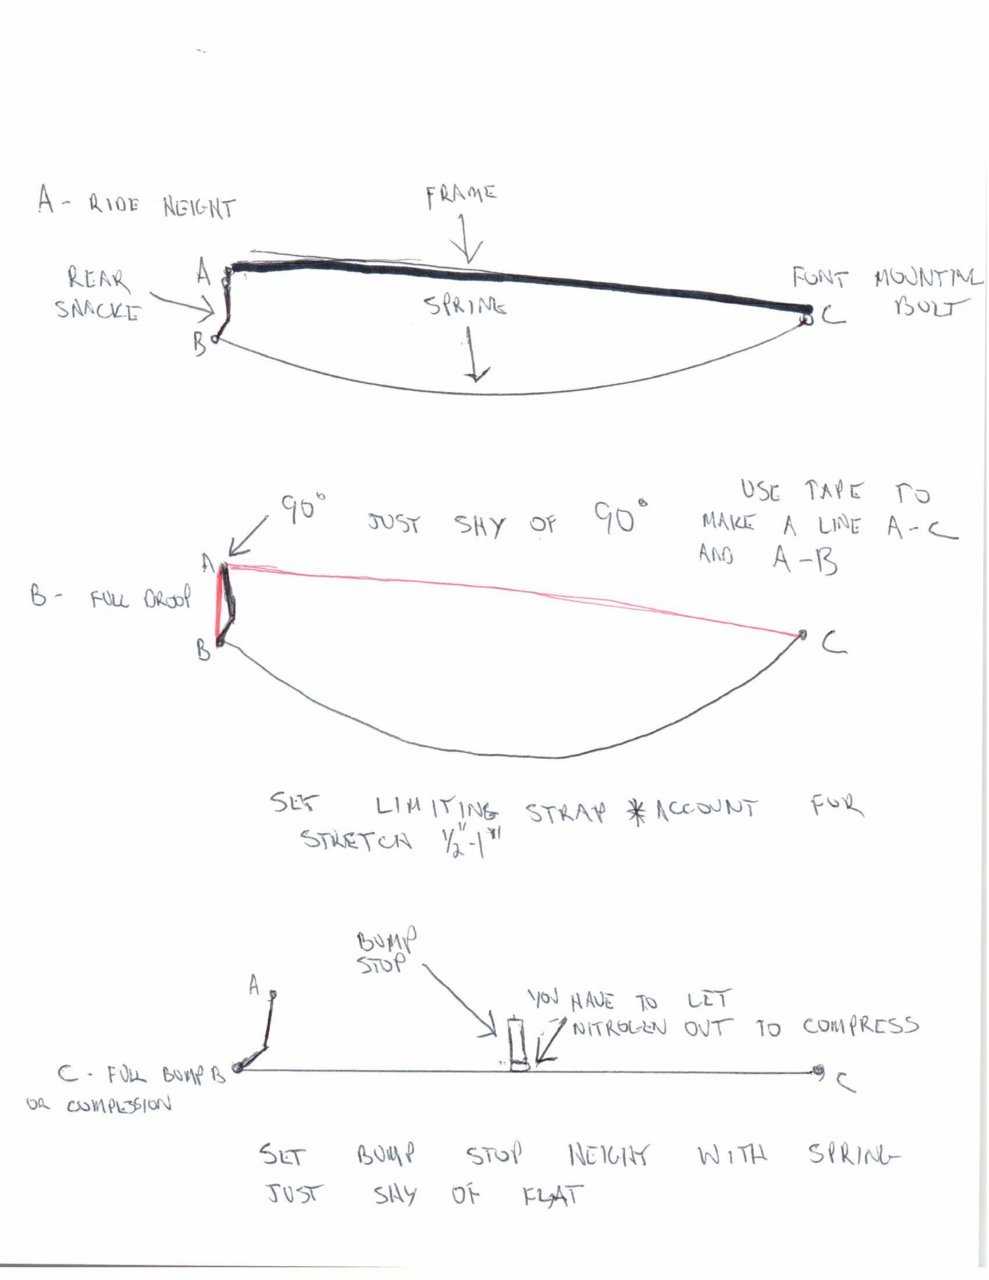 A - RIDE HEIGHT
FRAME
REAR
SHACKE
A
B
SPRING
FONT MOUNTING
BOLT
C
90°
JUST SHY OF 90°
USE TAPE TO
MAKE A LINE A-C
AND A-B
A
B - FULL DROOP
B
C
SET LIMITING STRAP *ACCOUNT FOR
STRETCH 1/2"-1"
BUMP
STOP
A
YOU HAVE TO LET
NITROGEN OUT TO COMPRESS
C - FULL BUMP B
OR COMPESSION
C
SET BUMP STOP HEIGHT WITH SPRING
JUST SHY OF FLAT